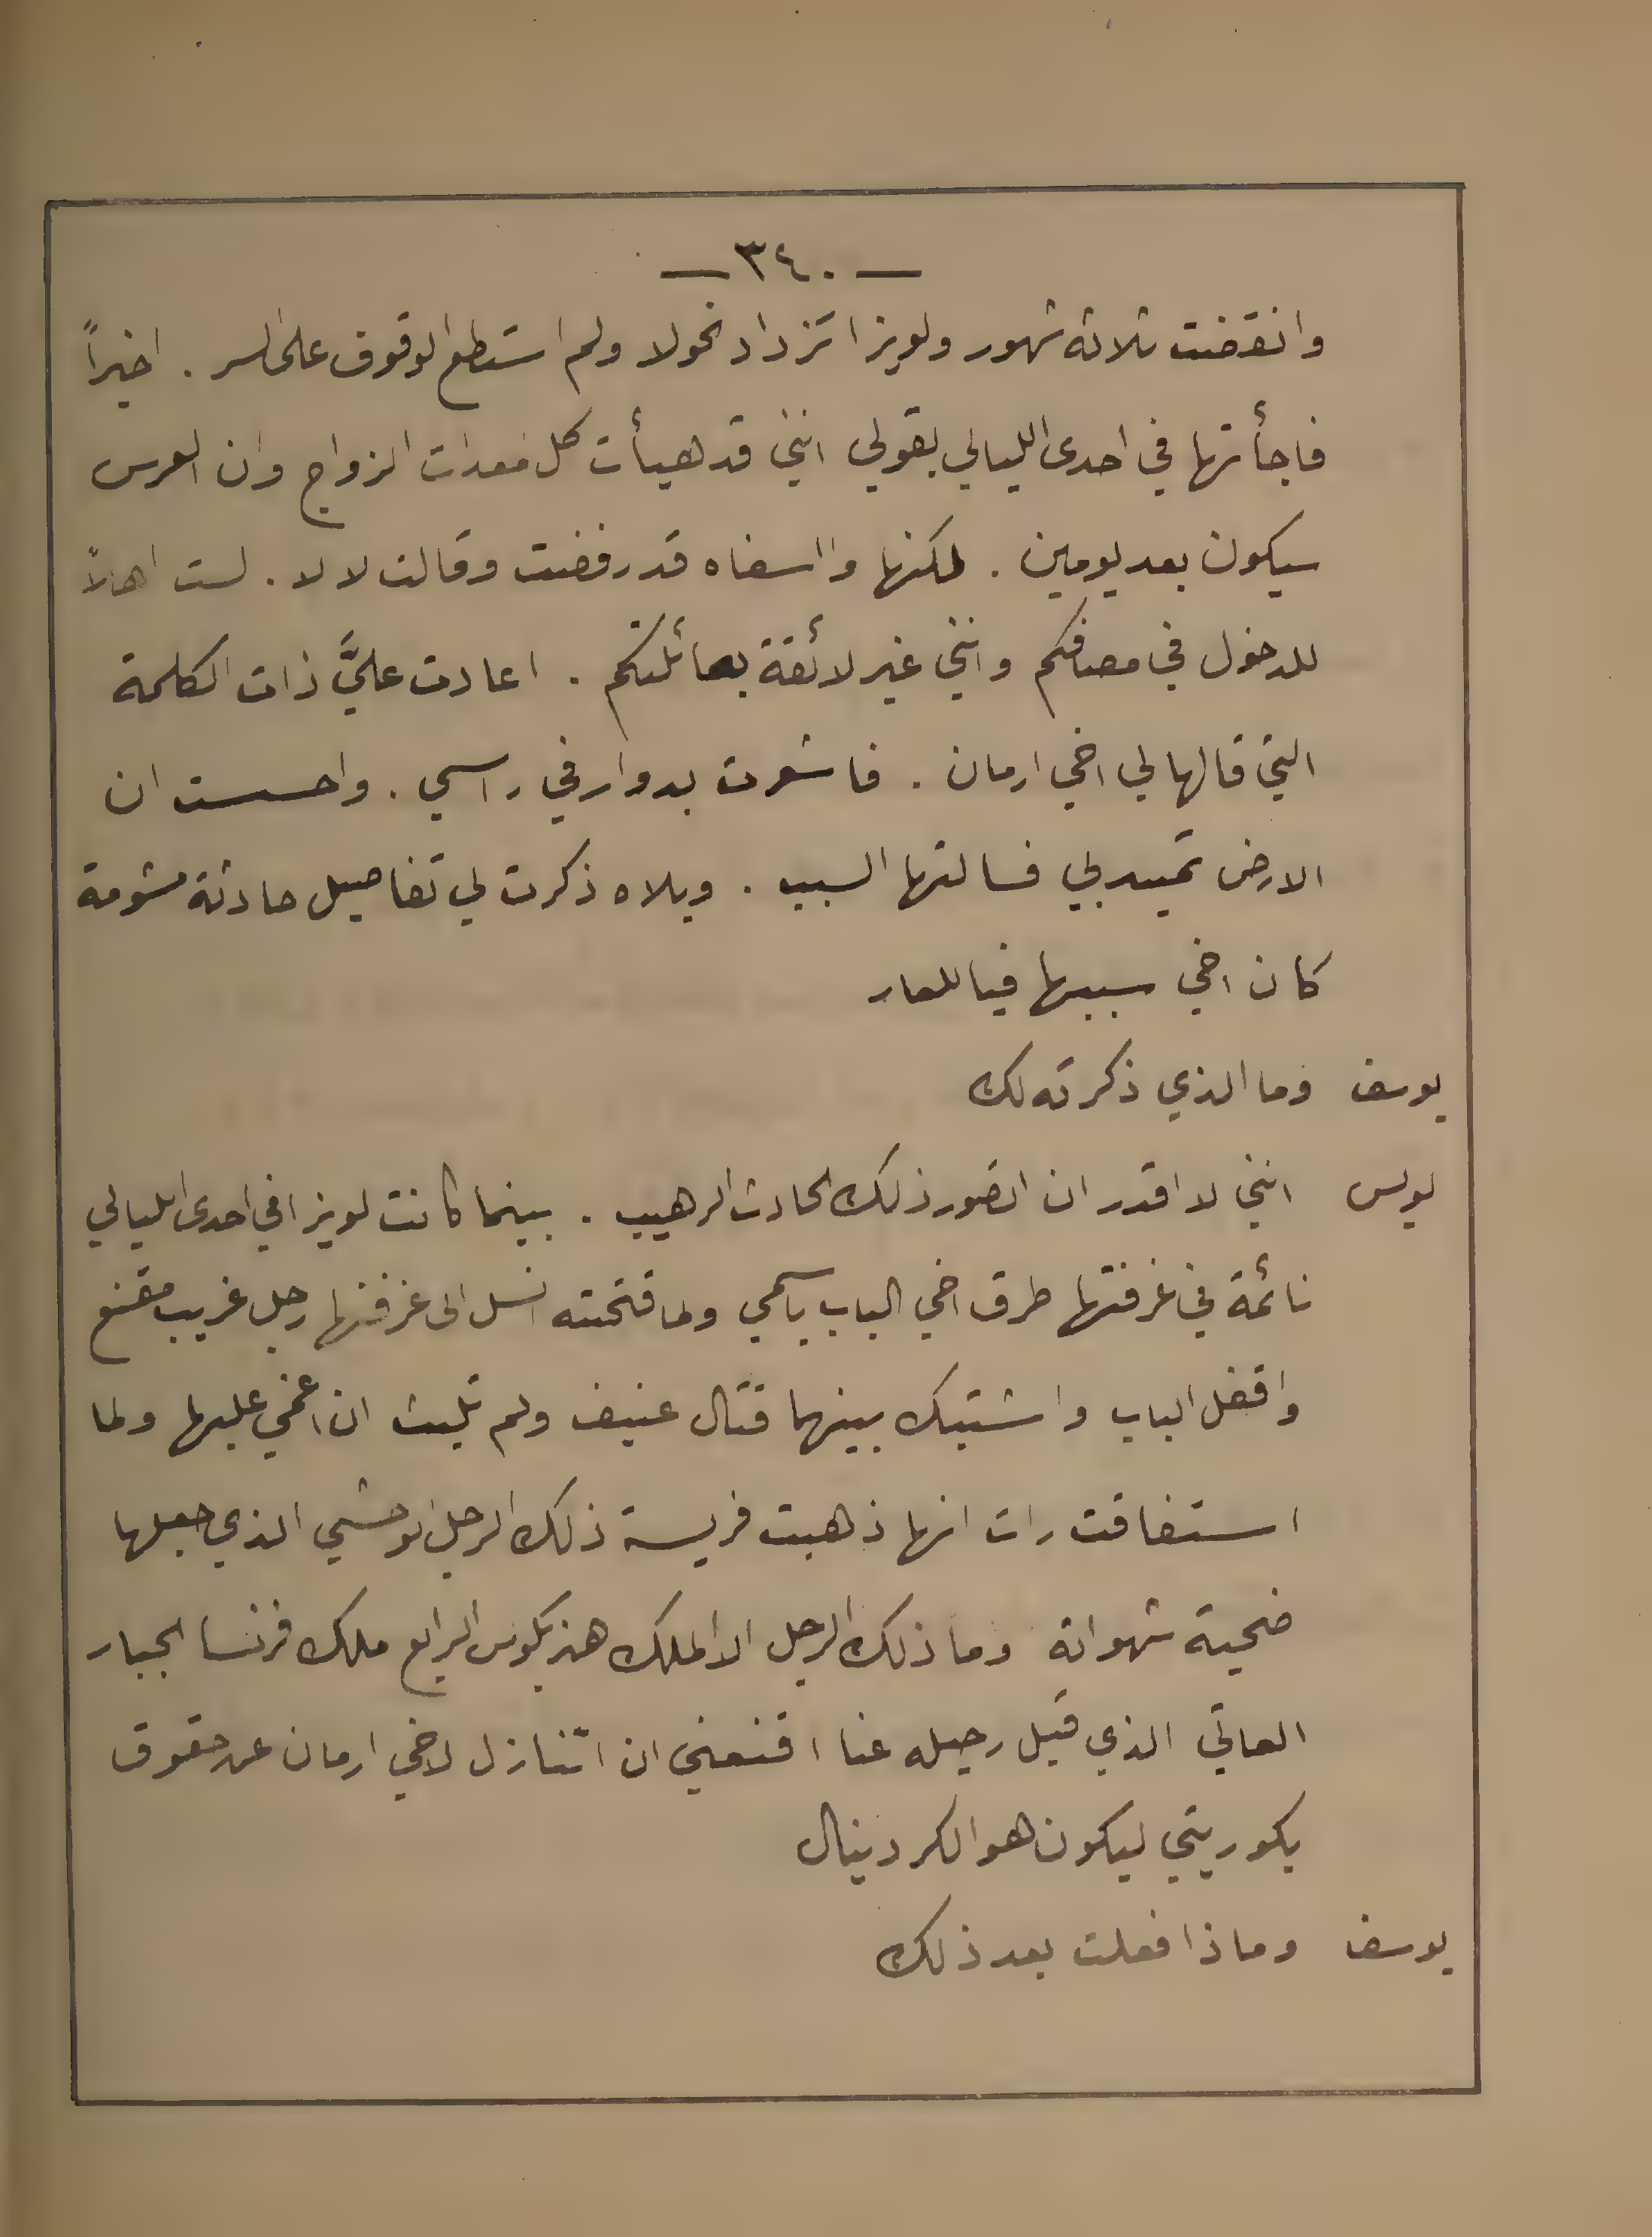 — ٣٤٠ —
وانقضت ثلاثة شهور ولويزا تزداد نحولا ولم استطع الوقوف على السر . اخيراً
فاجأتها في احدى الليالي بقولي انني قد هيأت كل معدات الزواج وان العرس
سيكون بعد يومين . لكنها وااسفاه قد رفضت وقالت لا لا . لست اهلاً
للدخول في مصافكم وانني غير لائقة بعائلتكم . اعادت عليَّ ذات الكلمة
التي قالها لي اخي ارمان . فاشعرت بدوار في راسي . واحسست ان
الارض تميد بي فسالتها السبب . ويلاه ذكرت لي تفاصيل حادثة مشومة
كان اخي سببها فيا للعار
يوسف وما الذي ذكرته لك
بولس انني لا اقدر ان اتصور ذلك الحادث الرهيب . بينما كانت لويزا في احدى الليالي
نائمة في غرفتها طرق اخي الباب باسمي ولما فتحته انسل الى غرفتها رجل غريب مقنع
واقفل الباب واشتبك بينهما قتال عنيف ولم تلبث ان اغمي عليها ولما
استفاقت رات انها ذهبت فريسة ذلك الرجل الوحشي الذي جعلها
ضحية شهواته وما ذلك الرجل الا الملك هنريكوس الرابع ملك فرنسا الجبار
العاتي الذي قبل رحيله عنا اقنعني ان اتنازل لاخي ارمان عن حقوق
بكوريتي ليكون هو الكردينال
يوسف وماذا فعلت بعد ذلك